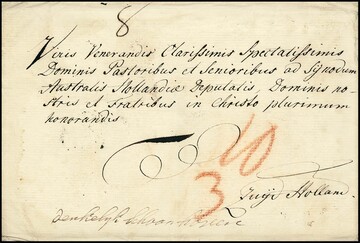 8
Viris Venerandis Clarissimis Spectatissimis
Dominis Pastoribus et Senioribus ad Synodum
Australis Hollandiæ Deputatis, Dominis no-
stris et fratribus in Christo plurimum
honorandis
10
3
Zuijd Holland.
denkelijk